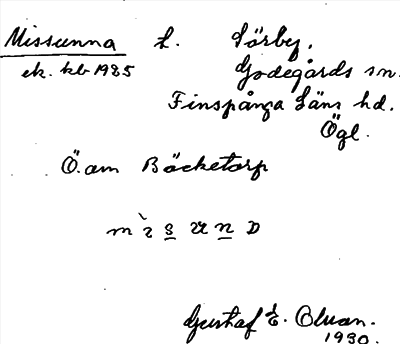 Missunna L. Sörby.
ek. kb 1935 Godegårds sn.
Finspånga Läns hd.
Ögl.
Ö. om Bäcketorp
Gustaf E.
1930.